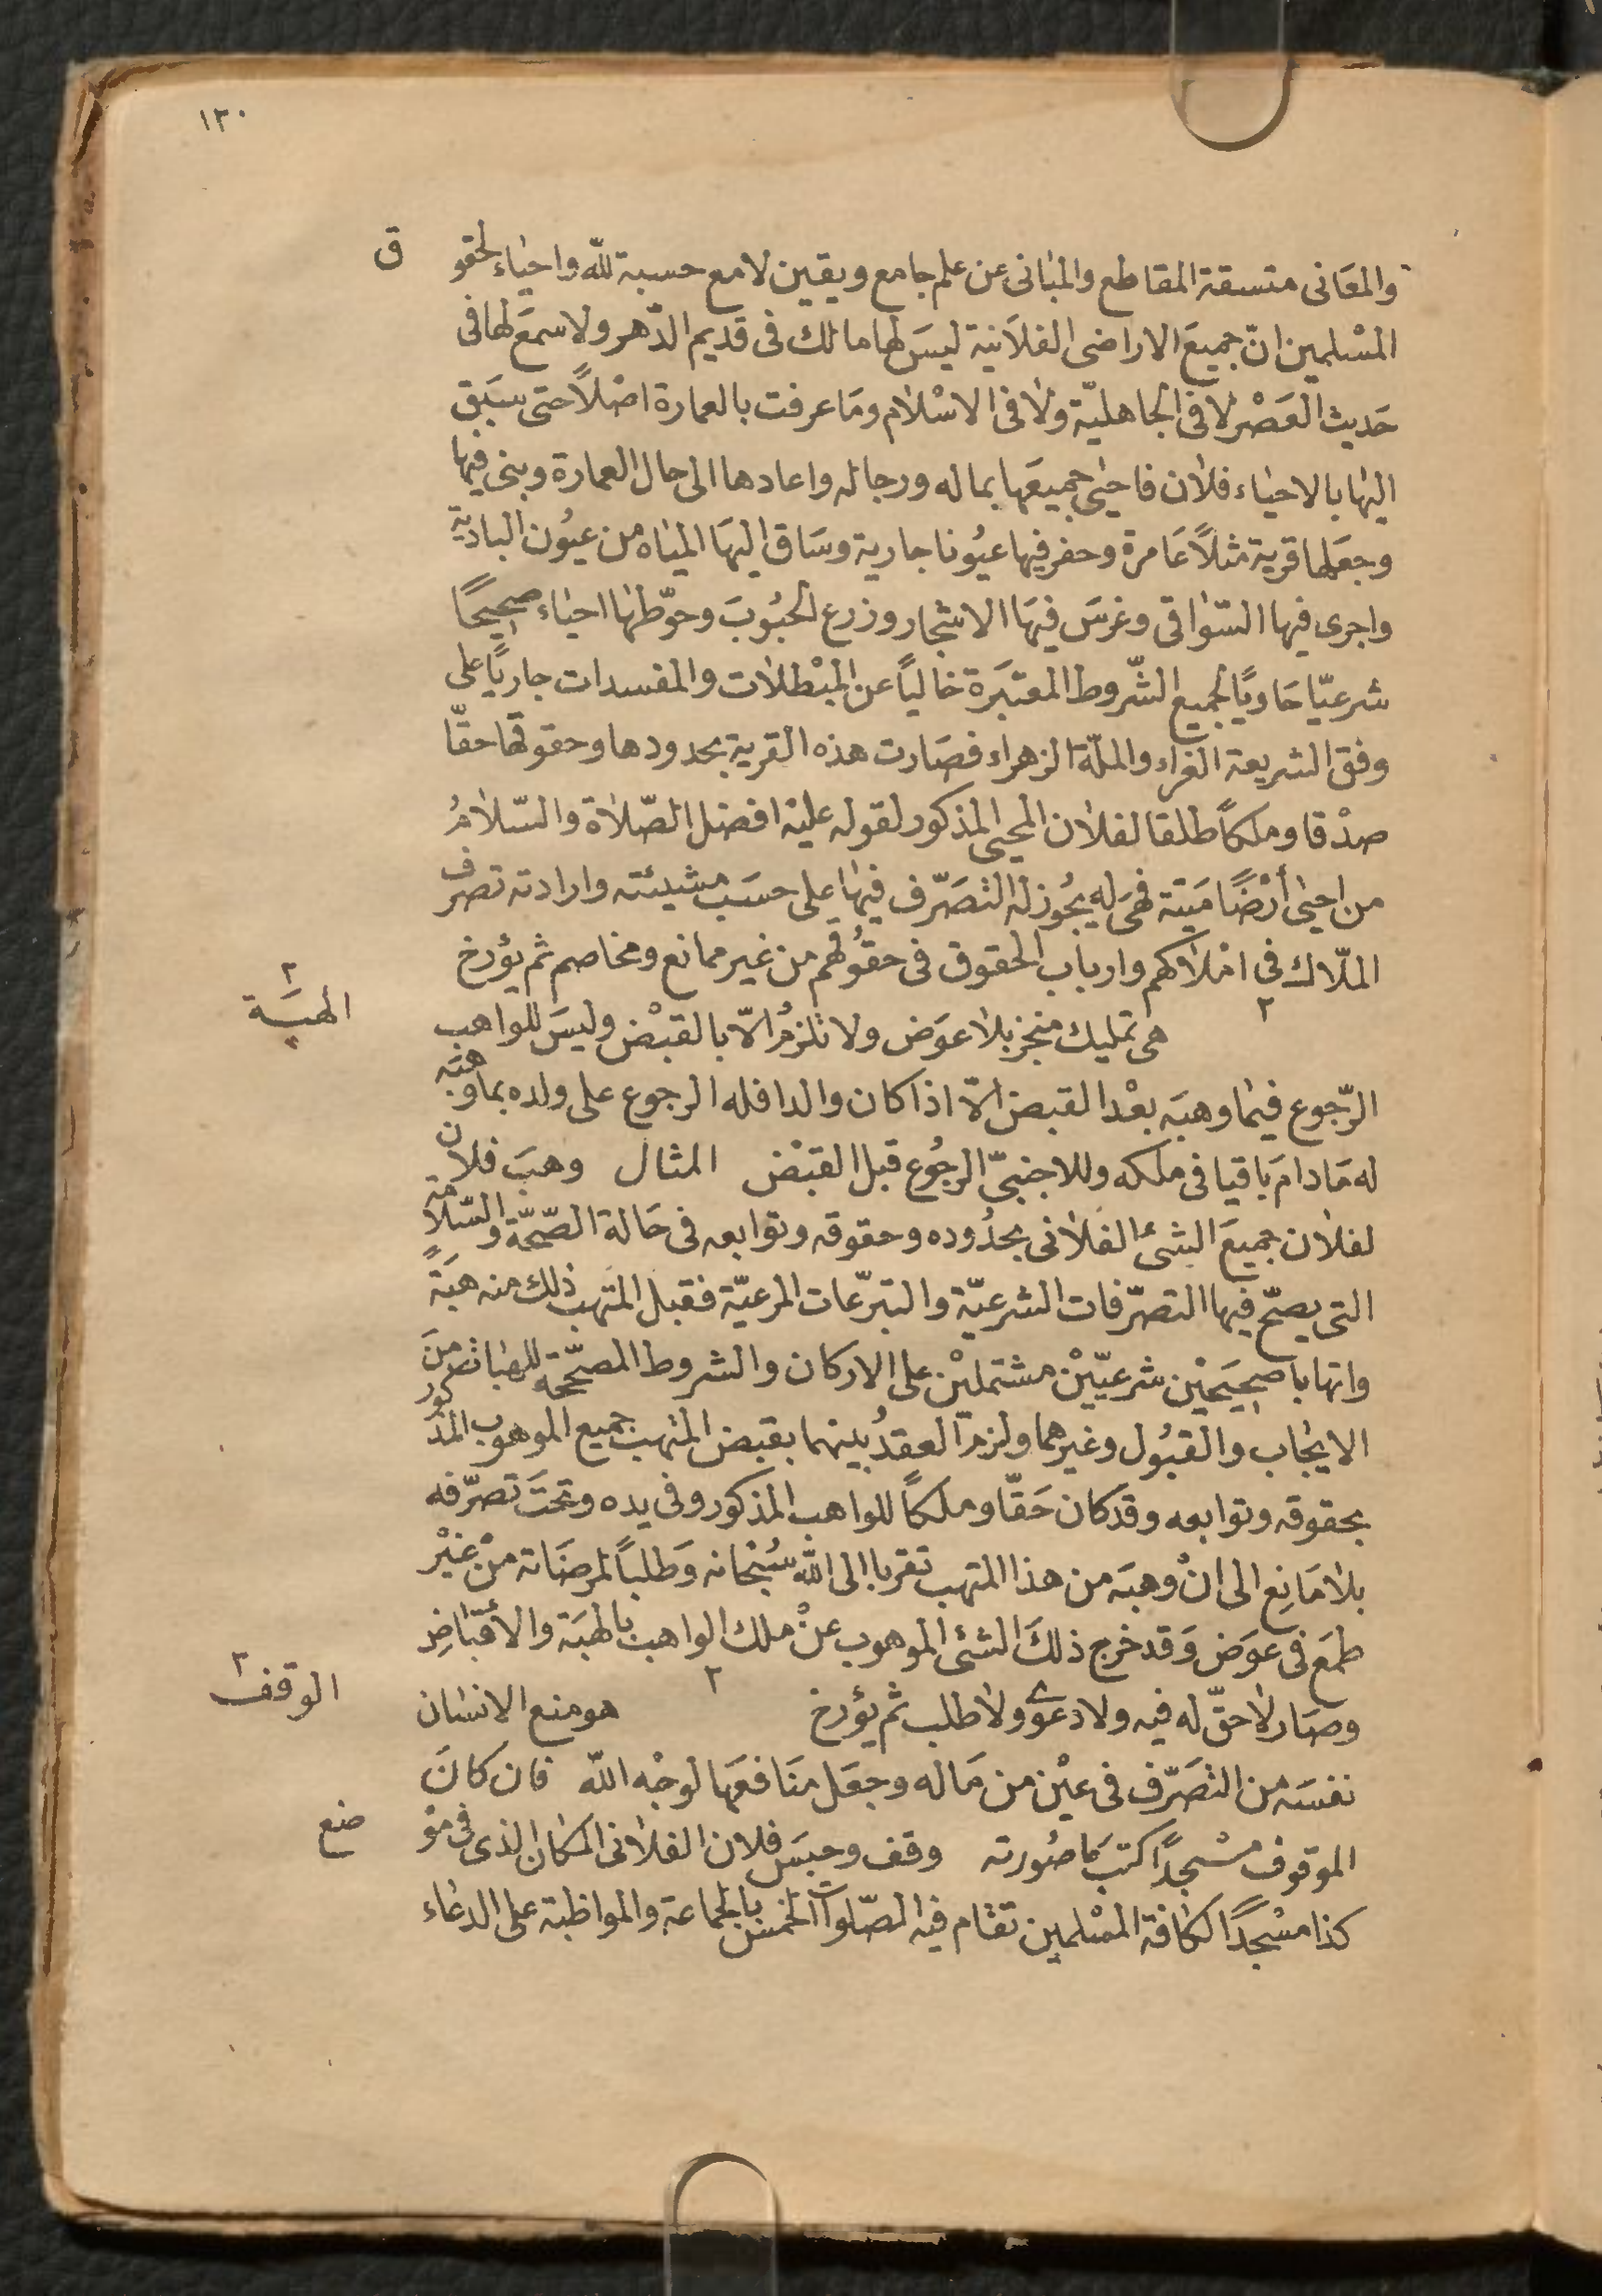 ١٣٠
والمعَانى متسقة المقاطع والمبانى عن علم جامع ويقين لامع حسبة للّه واحياء لحقو ق
المسْلمين انّ جميعَ الاراضى الفلاَنية ليسَ لها مالك فى قديم الدّهر ولا سمعَ لها فى
حَديث العَصْر لا فى الجاهليّة ولا فى الاسْلام ومَا عرفت بالعمارة اصْلاً حتى سبَق
اليها بالاحياء فلان فاحيى جميعَها بماله ورجاله واعادها الى حال العمارة وبنى فيها
وجعَلها قرية مثلاً عَامرة وحفر فيها عيُونا جارية وسَاق اليهَا المياه من عيُون البادية
واجرى فيها السّواقى وغرسَ فيهَا الاشجار وزرع الحبُوبَ وحوّطها احياء صحيحًا
شرعيّا حَاويًا لجميع الشّروط المعتبَرة خاليًا عن المبْطلات والمفسدات جاريًا على
وفق الشريعة الغراء والملّة الزهراء فصَارت هذه القرية بحدودها وحقوقها حقّا
صدْقا وملكًا طلقا لفلان المحيى المذكور لقوله عليْه افضل الصّلاة والسّلامُ
من احيى أرْضًا مَيتة فهىَ له يجُوز له التصَرّف فيها على حسَب مشيئته وارادته تصرف
الملّاك فى امْلاكهم وارباب الحقوق فى حقوُقهم من غير ممانع ومخاصم ثم يؤرخ
الهبَة ٢
٢ هى تمليك منجز بلا عوَض ولا تلزمُ الّا بالقبْض وليسَ للواهب
الرّجوع فيما وهبَه بعْد القبض الّا اذا كان والدا فله الرجوع على ولده بما وهبَه
له مَا دامَ باقيا فى ملكه وللاجنبىّ الرجُوع قبل القبْض المثال وهبَ فلان
لفلان جميعَ الشئ الفلانى بحدُوده وحقوقه وتوابعه فى حَالة الصّحّة والسّلامة
التى يصحّ فيها التصرّفات الشرعيّة والتبرّعات المرعيّة فقبل المتهب ذلك منه هبَةً
واتهابا صحيحَيْن شرعيّيْن مشتمليْن على الاركان والشروط المصحّحة للهبات من
الايجاب والقبُول وغيرهما ولزمَ العقدُ بينهما بقبض المتهب جميع الموهوب المذكور
بحقوقه وتوابعه وقد كان حَقّا وملكًا للواهب المذكور وفى يده وتحتَ تصرّفه
بلا مَانِع الى انْ وهبَه من هذا المتهب تقربا الى اللّه سُبْحانه وَطلبًا لمرضَاته منْ غيْر
طمَع فى عوَض وَقد خرج ذلكَ الشئى الموهوب عنْ ملك الواهب بالهبَة والأقباض
وصَار لا حقّ له فيه ولا دعوى ولا طلب ثم يؤرخ ٢ هو منع الانسَان
الوقف ٢
نفسَه من التصَرّف فى عيْن من مَاله وجعَل منَافعَها لوجْه اللّه فان كانَ
الموقوف مسْجدًا كتبَ مَا صُورته وقف وحبسَ فلان الفلانى المكان الذى فى موْ ضع
كذا مسْجدًا لكافة المسْلمين تقام فيه الصّلوات الخمس بالجماعة والمواظبة على الدعاء